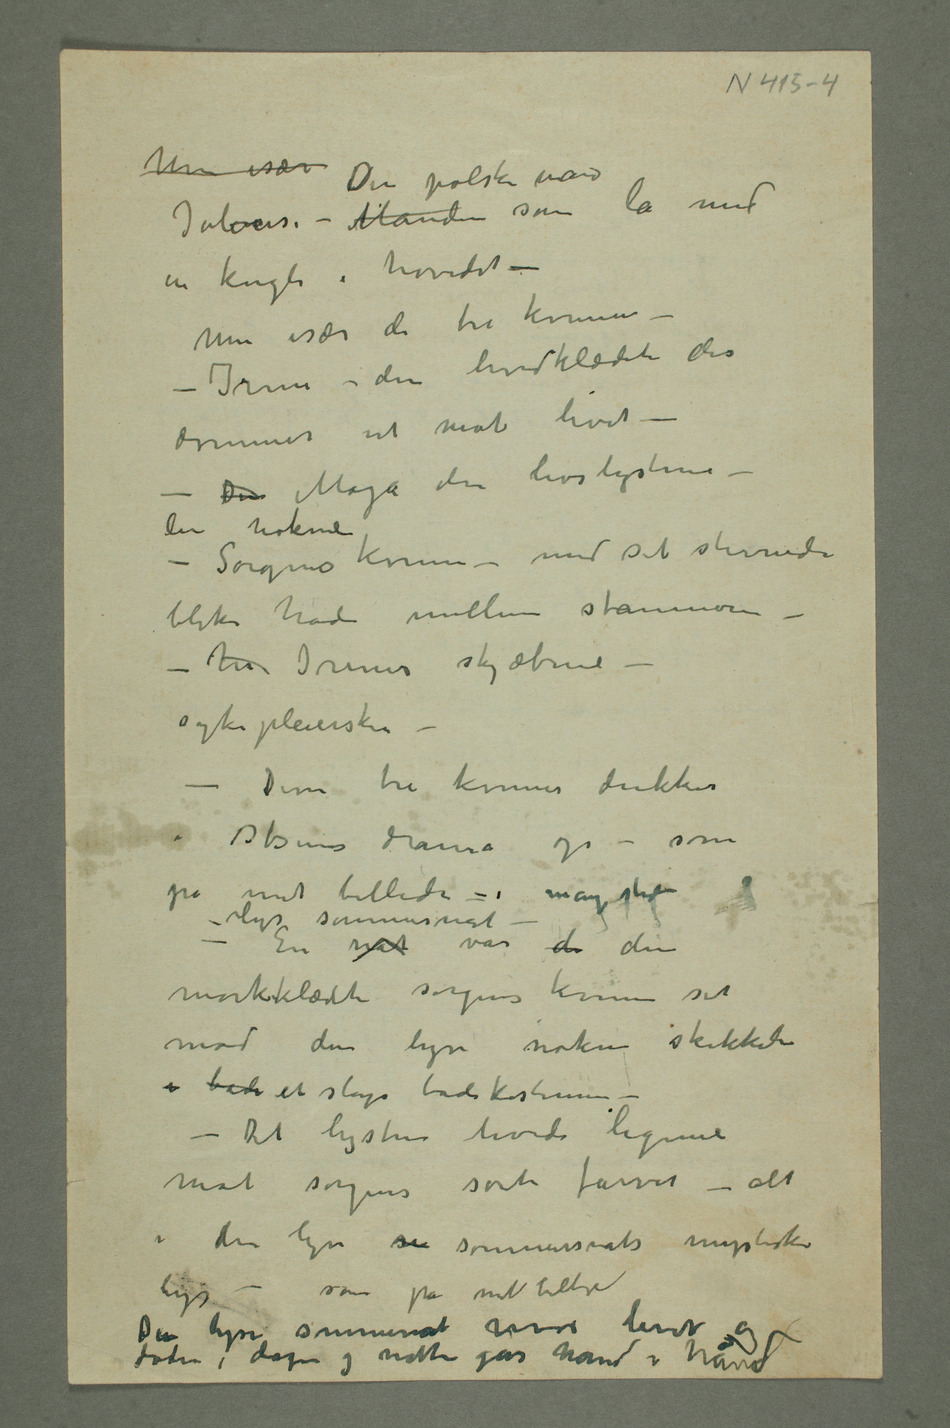 N 415-4
Men især Den polske mand
Jalousi – Manden som lå med
en kugle i hovedet –
Men især de tre kvinner –
– Irene – den hvidklædte der
drømmer ut mot livet –
– Den Maja den livslystne –
den nøkne
– Sorgens kvinne – med sit stirrende
blikk hode mellem stammerne –
– hos Irenes skjæbne –
sykepleierske –
– Disse tre kvinner dukker
i Ibsens drama op – som
på mit billede – i mang sted
– lys sommernat –
– En nat var de den
mørkklædte sorgens kvinne set
mod den lyse nøkne skikkelse
i bade et slags badekostume –
– Det lystne hvide legeme
mot sorgens sorte farver – alt
i den lyse se sommernats mystiske
lys – som på mit billed
Den lyse sommernat hvor livet og
døden, dagen og natten går hånd i hånd